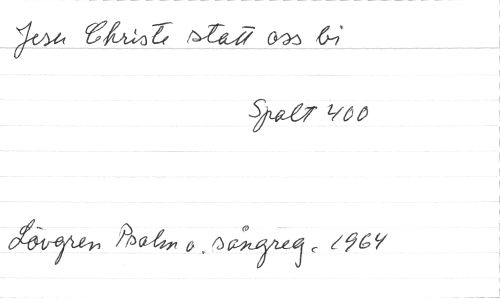 Jesu Christe statt oss bi
Spalt 400
Lövgren Psalm o. sångreg. 1964